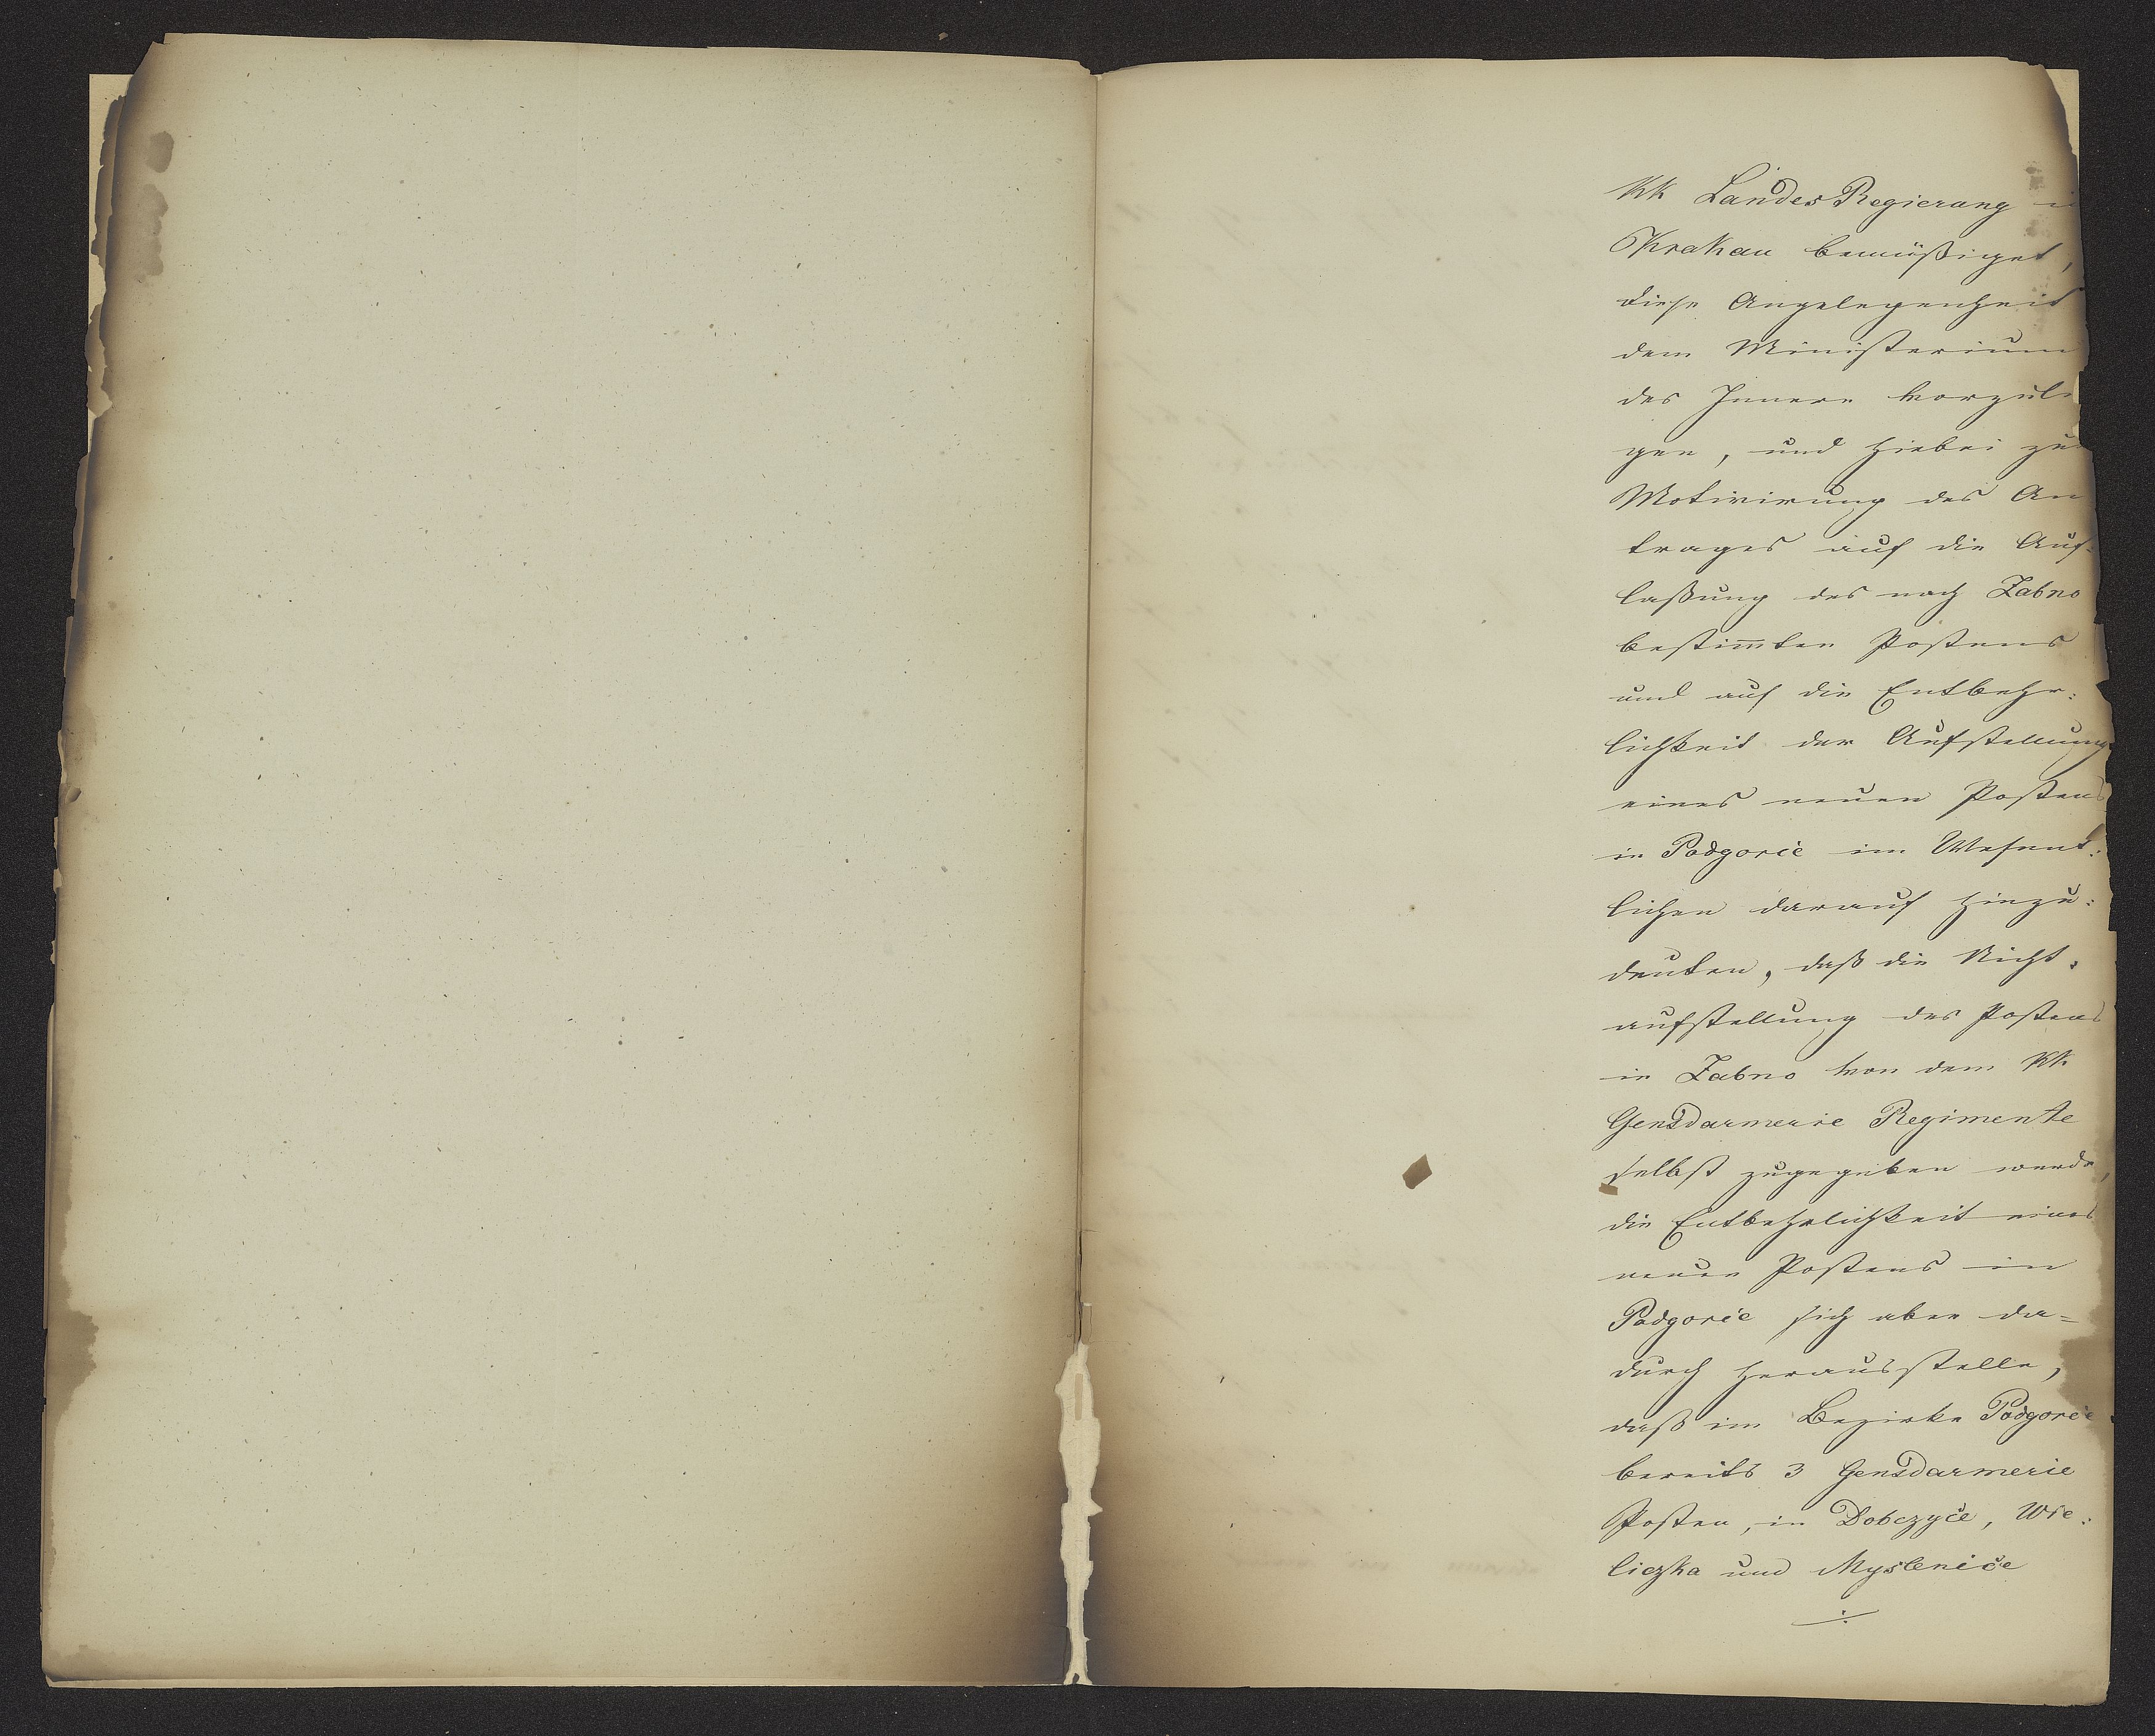 KK Landes Regierung i
Krakau bemüßiget,
diese Angelegenheit
dem Ministerium
des Innern vorzule
gen, und hiebei zur
Motivirung des An
trages auf die Auf=
laßung des nach Zabno
bestim̄ten Postens
und auf die Entbehr:
lichkeit der Aufstellung
eines neuen Postens
in Podgorce im Wesent:
lichen darauf hinzu:
deuten, daß die Nicht:
aufstellung des Postens
in Zabno von dem KK
Gensdarmerie Regimente
selbst zugegeben werde,
die Entbehrlichkeit eines
neuen Postens in
Podgorce sich aber da=
durch herausstelle,
daß im Bezirke Podgorce
bereits 3 Gensdarmerie
Posten, in Dobczyce, Wie:
liczka und Myslenice